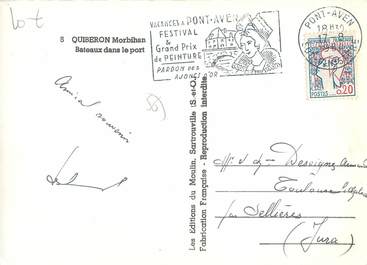 8 QUIBERON Morbihan
Bateaux dans le port
VACANCES A PONT-AVEN
FESTIVAL
& Grand Prix
de PEINTURE
PARDON DES
AJONCS D'OR
PONT-AVEN
18H
17-8
POSTES
0,20
Amical souvenir
Les Editions du Moulin, Sartrouville (S-et-O)
Fabrication Française - Reproduction interdite
Toulouse
par Sellières
(Jura)